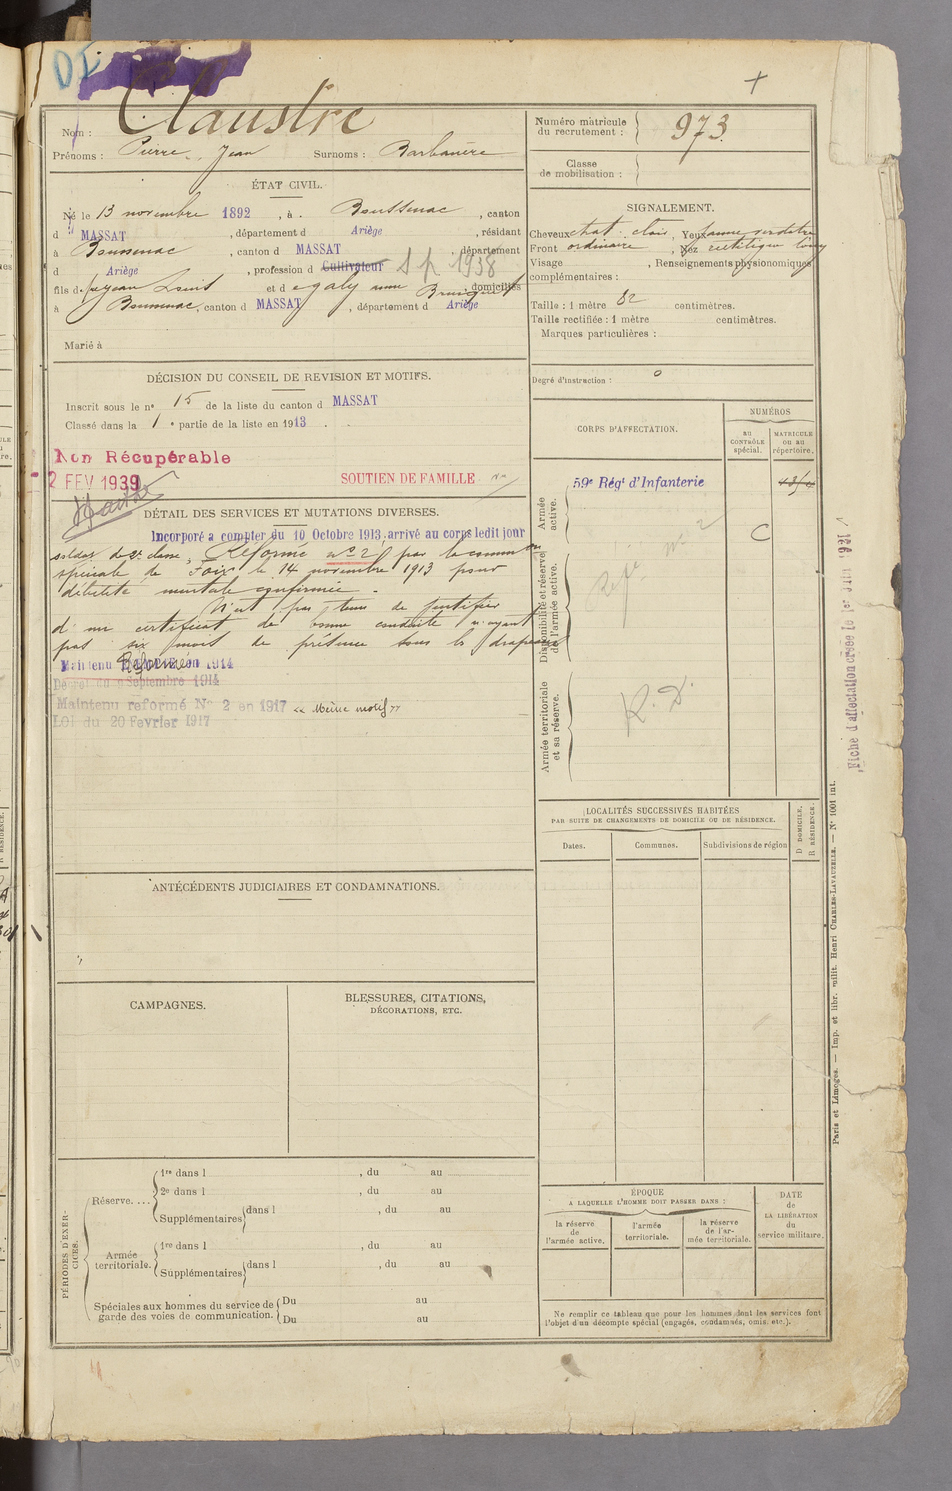 Claustre
Nom :
Prénoms : Pierre, Jean Surnoms : Barbanère
Numéro matricule du recrutement : 973
Classe de mobilisation :
ÉTAT CIVIL.
Né le 13 novembre 1892, à Boussenac, canton
d MASSAT, département d Ariège, résidant
à Boussenac, canton d MASSAT, département
d Ariège, profession d Cultivateur S p 1938
fils de Jean Louis et d egaly anne domiciliés
à Boussenac, canton d MASSAT, département d Ariège
Marié à
SIGNALEMENT.
Cheveux chat. clair, Yeux jaune verdâtre
Front ordinaire, Nez rectiligne long
Visage , Renseignements physionomiques
complémentaires :
Taille : 1 mètre 82 centimètres.
Taille rectifiée : 1 mètre centimètres.
Marques particulières :
Degré d'instruction : 0
DÉCISION DU CONSEIL DE REVISION ET MOTIFS.
Inscrit sous le n° 15 de la liste du canton d MASSAT
Classé dans la 1 e partie de la liste en 1913.
Non Récupérable
2 FEV 1939
SOUTIEN DE FAMILLE
DÉTAIL DES SERVICES ET MUTATIONS DIVERSES.
Incorporé a compter du 10 Octobre 1913. arrivé au corps ledit jour
soldat de 2e classe, Réformé n° 2 par la commission
spéciale de Foix le 14 novembre 1913 pour
débilité mentale confirmée.
N'est pas tenu de justifier
d'un certificat de bonne conduite n'ayant
pas six mois de présence sous les drapeaux
Maintenu Réformé en 1914
Décret du 9 Septembre 1914
Maintenu reformé N° 2 en 1917 « Même motif »
LOI du 20 Fevrier 1917
CORPS D'AFFECTATION.
NUMÉROS
au CONTRÔLE spécial.
MATRICULE ou au répertoire.
Armée active.
59e Régt d'Infanterie
C
Disponibilité et réserve de l'armée active.
Réfé n° 2
Armée territoriale et sa réserve.
R. D.
Fiche d'affectation créée le 1er Juin 1931
LOCALITÉS SUCCESSIVES HABITÉES
PAR SUITE DE CHANGEMENTS DE DOMICILE OU DE RÉSIDENCE.
Dates.
Communes.
Subdivisions de région
D DOMICILE.
R RÉSIDENCE.
ANTÉCÉDENTS JUDICIAIRES ET CONDAMNATIONS.
CAMPAGNES.
BLESSURES, CITATIONS,
DÉCORATIONS, ETC.
PÉRIODES D'EXERCICES.
Réserve....
1re dans l , du au
2e dans l , du au
Supplémentaires dans l , du au
Armée territoriale.
1re dans l , du au
Supplémentaires dans l , du au
Spéciales aux hommes du service de garde des voies de communication.
Du au
Du au
ÉPOQUE
A LAQUELLE L'HOMME DOIT PASSER DANS :
la réserve de l'armée active.
l'armée territoriale.
la réserve de l'armée territoriale.
DATE de LA LIBÉRATION du service militaire.
Ne remplir ce tableau que pour les hommes dont les services font
l'objet d'un décompte spécial (engagés, condamnés, omis. etc.).
Paris et Limoges. — Imp. et libr. milit. Henri CHARLES-LAVAUZELLE. — N° 1001 int.